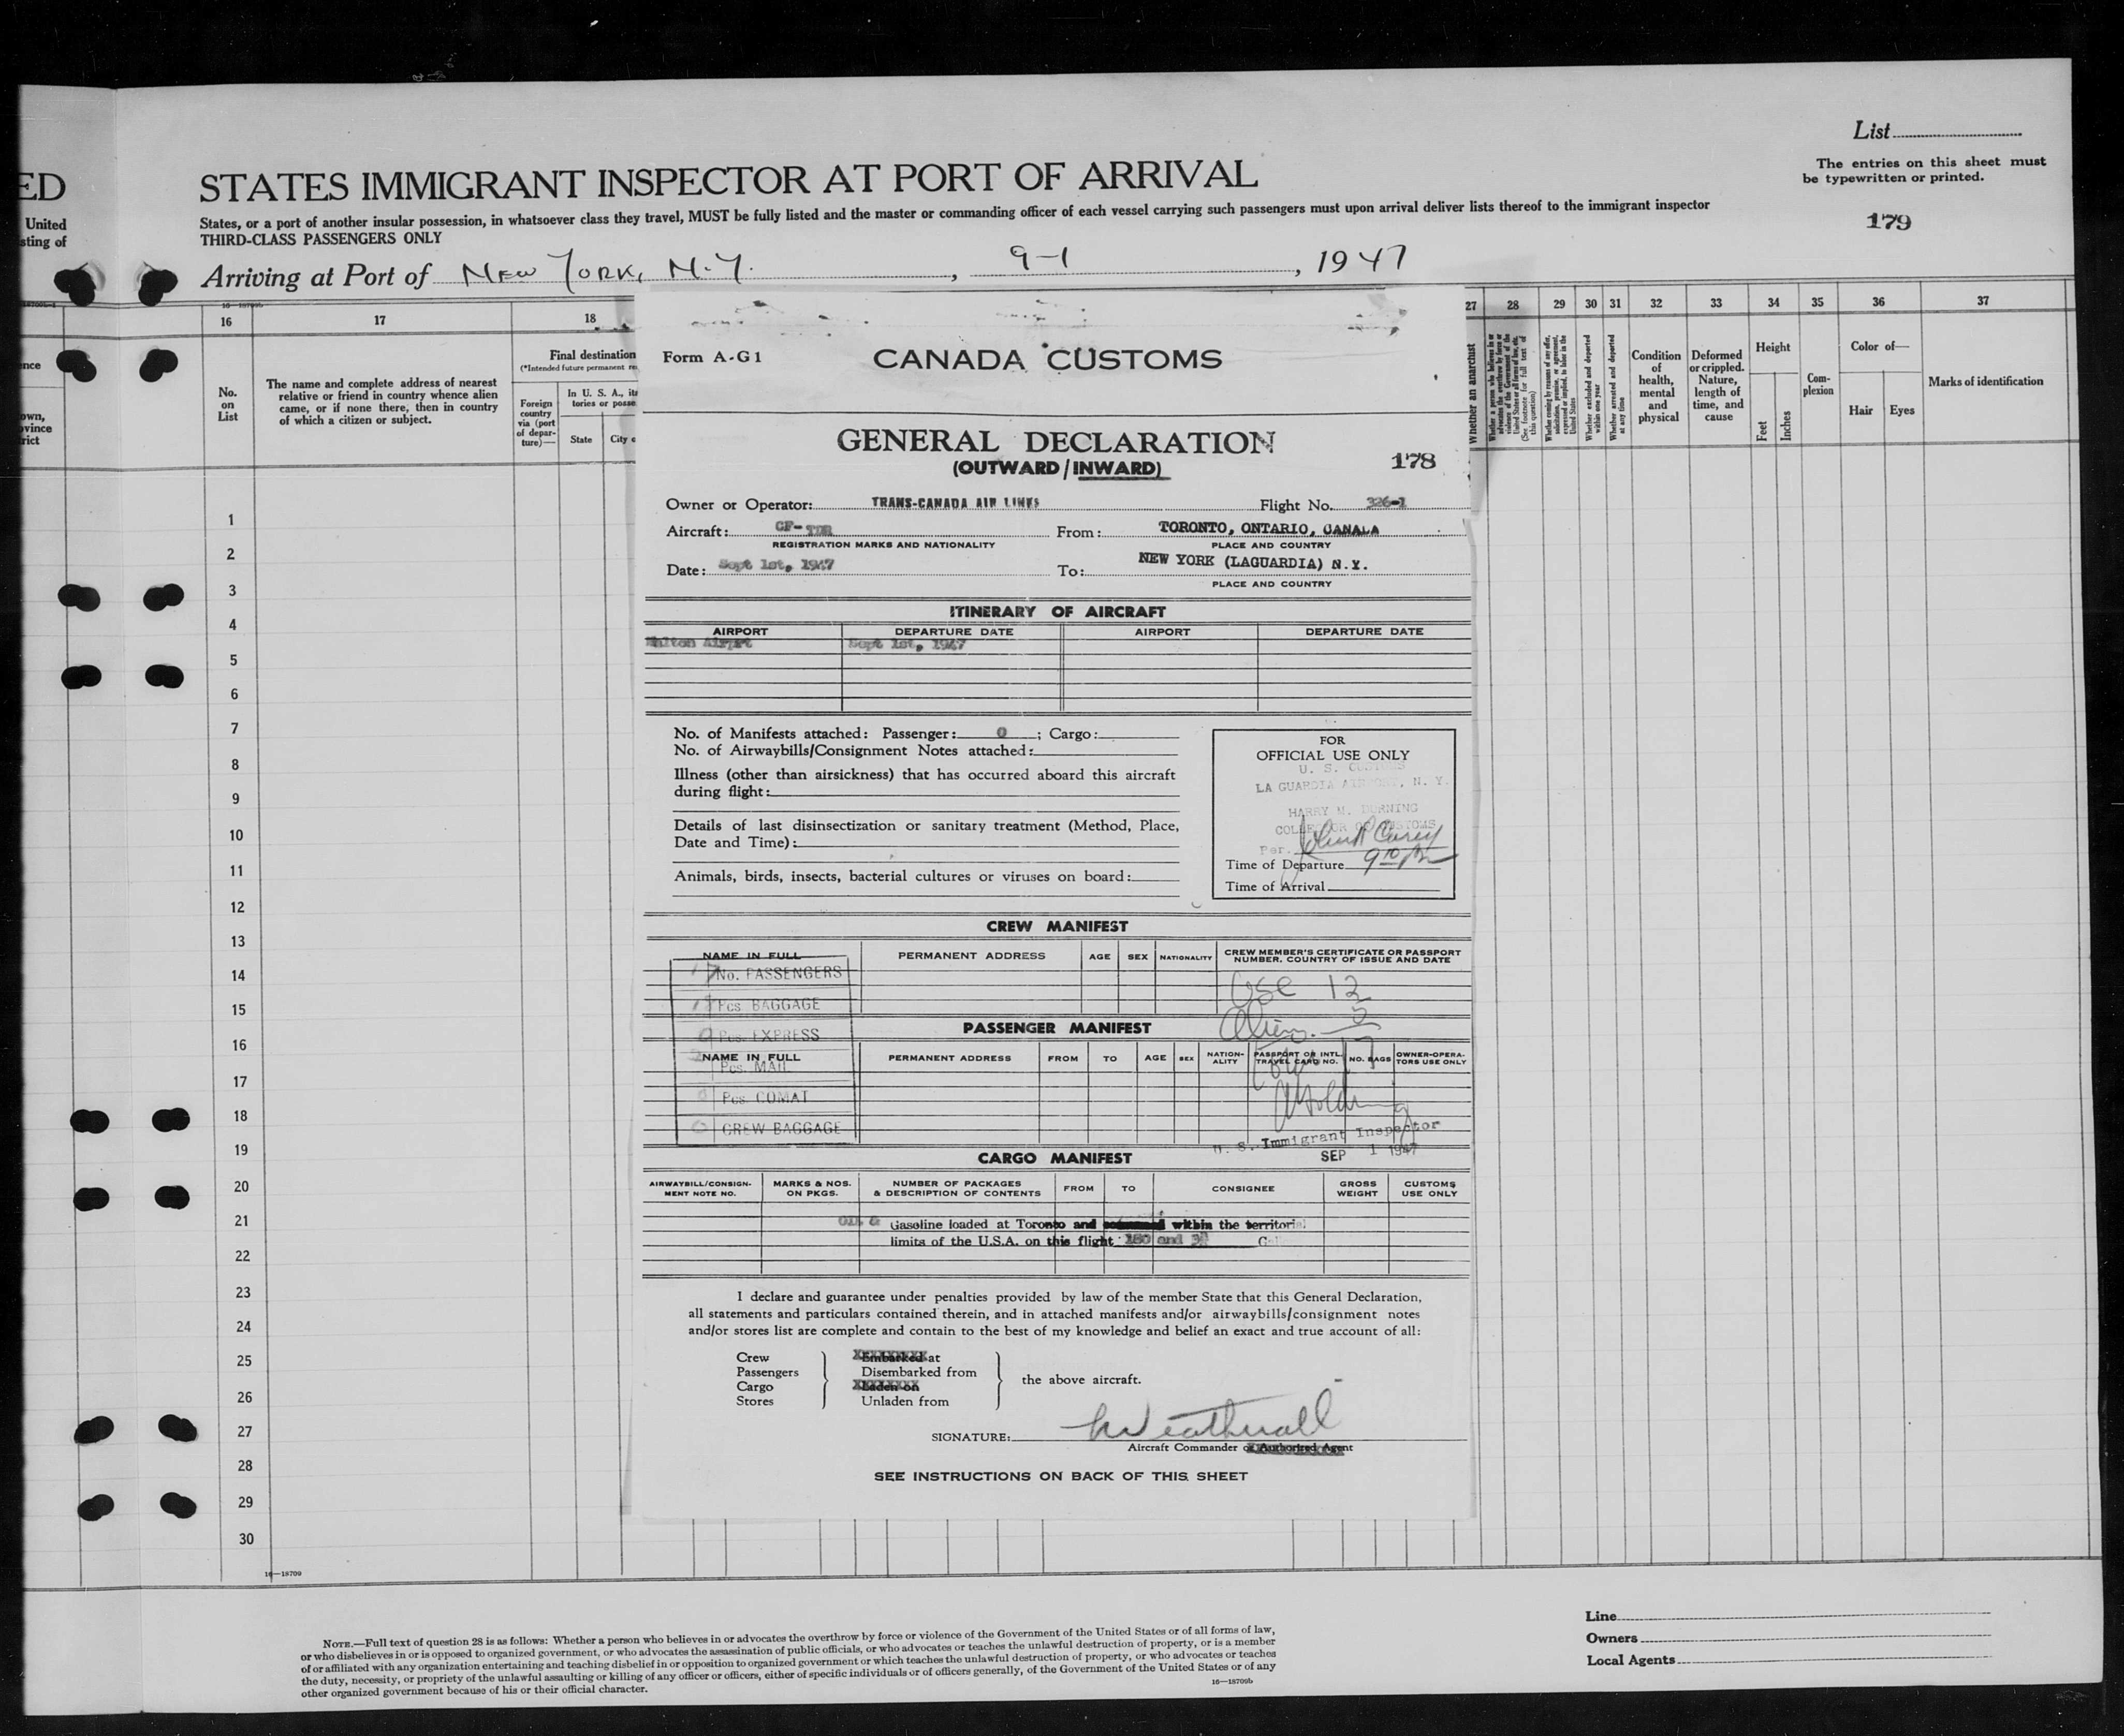 List
The entries on this sheet must
be typewritten or printed.
ED
STATES IMMIGRANT INSPECTOR AT PORT OF ARRIVAL
United
States, or a port of another insular possession, in whatsoever class they travel, MUST be fully listed and the master or commanding officer of each vessel carrying such passengers must upon arrival deliver lists thereof to the immigrant inspector
sting of
THIRD-CLASS PASSENGERS ONLY
179
Arriving at Port of New York, N.Y. , 9-1 , 1947
16 17 18 27 28 29 30 31 32 33 34 35 36 37
No. on List
The name and complete address of nearest
relative or friend in country whence alien
came, or if none there, then in country
of which a citizen or subject.
Final destination
(*Intended future permanent
Foreign country via (port of departure)—
In U. S. A., its
State
City
Whether an anarchist
Condition of health, mental and physical
Deformed or crippled. Nature, length of time, and cause
Height
Feet
Inches
Complexion
Color of—
Hair
Eyes
Marks of identification
1
2
3
4
5
6
7
8
9
10
11
12
13
14
15
16
17
18
19
20
21
22
23
24
25
26
27
28
29
30
Form A-G1
CANADA CUSTOMS
GENERAL DECLARATION
(OUTWARD/INWARD)
178
Owner or Operator: TRANS-CANADA AIR LINES Flight No. 326-1
Aircraft: CF- From: TORONTO, ONTARIO, CANADA
REGISTRATION MARKS AND NATIONALITY PLACE AND COUNTRY
Date: Sept 1st, 1947 To: NEW YORK (LAGUARDIA) N.Y.
PLACE AND COUNTRY
ITINERARY OF AIRCRAFT
AIRPORT DEPARTURE DATE AIRPORT DEPARTURE DATE
Malton Airprt Sept 1st, 1947
No. of Manifests attached: Passenger: 0 ; Cargo:
No. of Airwaybills/Consignment Notes attached:
Illness (other than airsickness) that has occurred aboard this aircraft
during flight:
Details of last disinsectization or sanitary treatment (Method, Place,
Date and Time):
Animals, birds, insects, bacterial cultures or viruses on board:
FOR
OFFICIAL USE ONLY
U. S. CUSTOMS
LA GUARDIA AIRPORT, N. Y.
HARRY M. DURNING
COLLECTOR OF CUSTOMS
Per.
Time of Departure 9
Time of Arrival
CREW MANIFEST
NAME IN FULL PERMANENT ADDRESS AGE SEX NATIONALITY CREW MEMBER'S CERTIFICATE OR PASSPORT
NUMBER, COUNTRY OF ISSUE AND DATE
17 No. PASSENGERS
Pcs BAGGAGE
USC 12
Pcs. EXPRESS
PASSENGER MANIFEST
Aliens 5
NAME IN FULL PERMANENT ADDRESS FROM TO AGE SEX NATION-ALITY PASSPORT OR INTL. TRAVEL CARD NO. NO. BAGS OWNER-OPERA-TORS USE ONLY
Pcs. MAIL
17
Pcs. COMAT
CREW BAGGAGE
U. S. Immigrant Inspector
SEP 1 1947
CARGO MANIFEST
AIRWAYBILL/CONSIGN-MENT NOTE NO. MARKS & NOS. ON PKGS. NUMBER OF PACKAGES & DESCRIPTION OF CONTENTS FROM TO CONSIGNEE GROSS WEIGHT CUSTOMS USE ONLY
OIL & Gasoline loaded at Toronto and within the territorial
limits of the U.S.A. on this flight 180 and
I declare and guarantee under penalties provided by law of the member State that this General Declaration,
all statements and particulars contained therein, and in attached manifests and/or airwaybills/consignment notes
and/or stores list are complete and contain to the best of my knowledge and belief an exact and true account of all:
Crew Embarked at
Passengers Disembarked from
Cargo Laden on
Stores Unladen from
the above aircraft.
SIGNATURE:
Aircraft Commander or Authorized Agent
SEE INSTRUCTIONS ON BACK OF THIS SHEET
16—18709
Line
Owners
Local Agents
NOTE.—Full text of question 28 is as follows: Whether a person who believes in or advocates the overthrow by force or violence of the Government of the United States or of all forms of law,
or who disbelieves in or is opposed to organized government, or who advocates the assassination of public officials, or who advocates or teaches the unlawful destruction of property, or is a member
of or affiliated with any organization entertaining and teaching disbelief in or opposition to organized government or which teaches the unlawful destruction of property, or who advocates or teaches
the duty, necessity, or propriety of the unlawful assaulting or killing of any officer or officers, either of specific individuals or of officers generally, of the Government of the United States or of any
other organized government because of his or their official character.
16—18709b